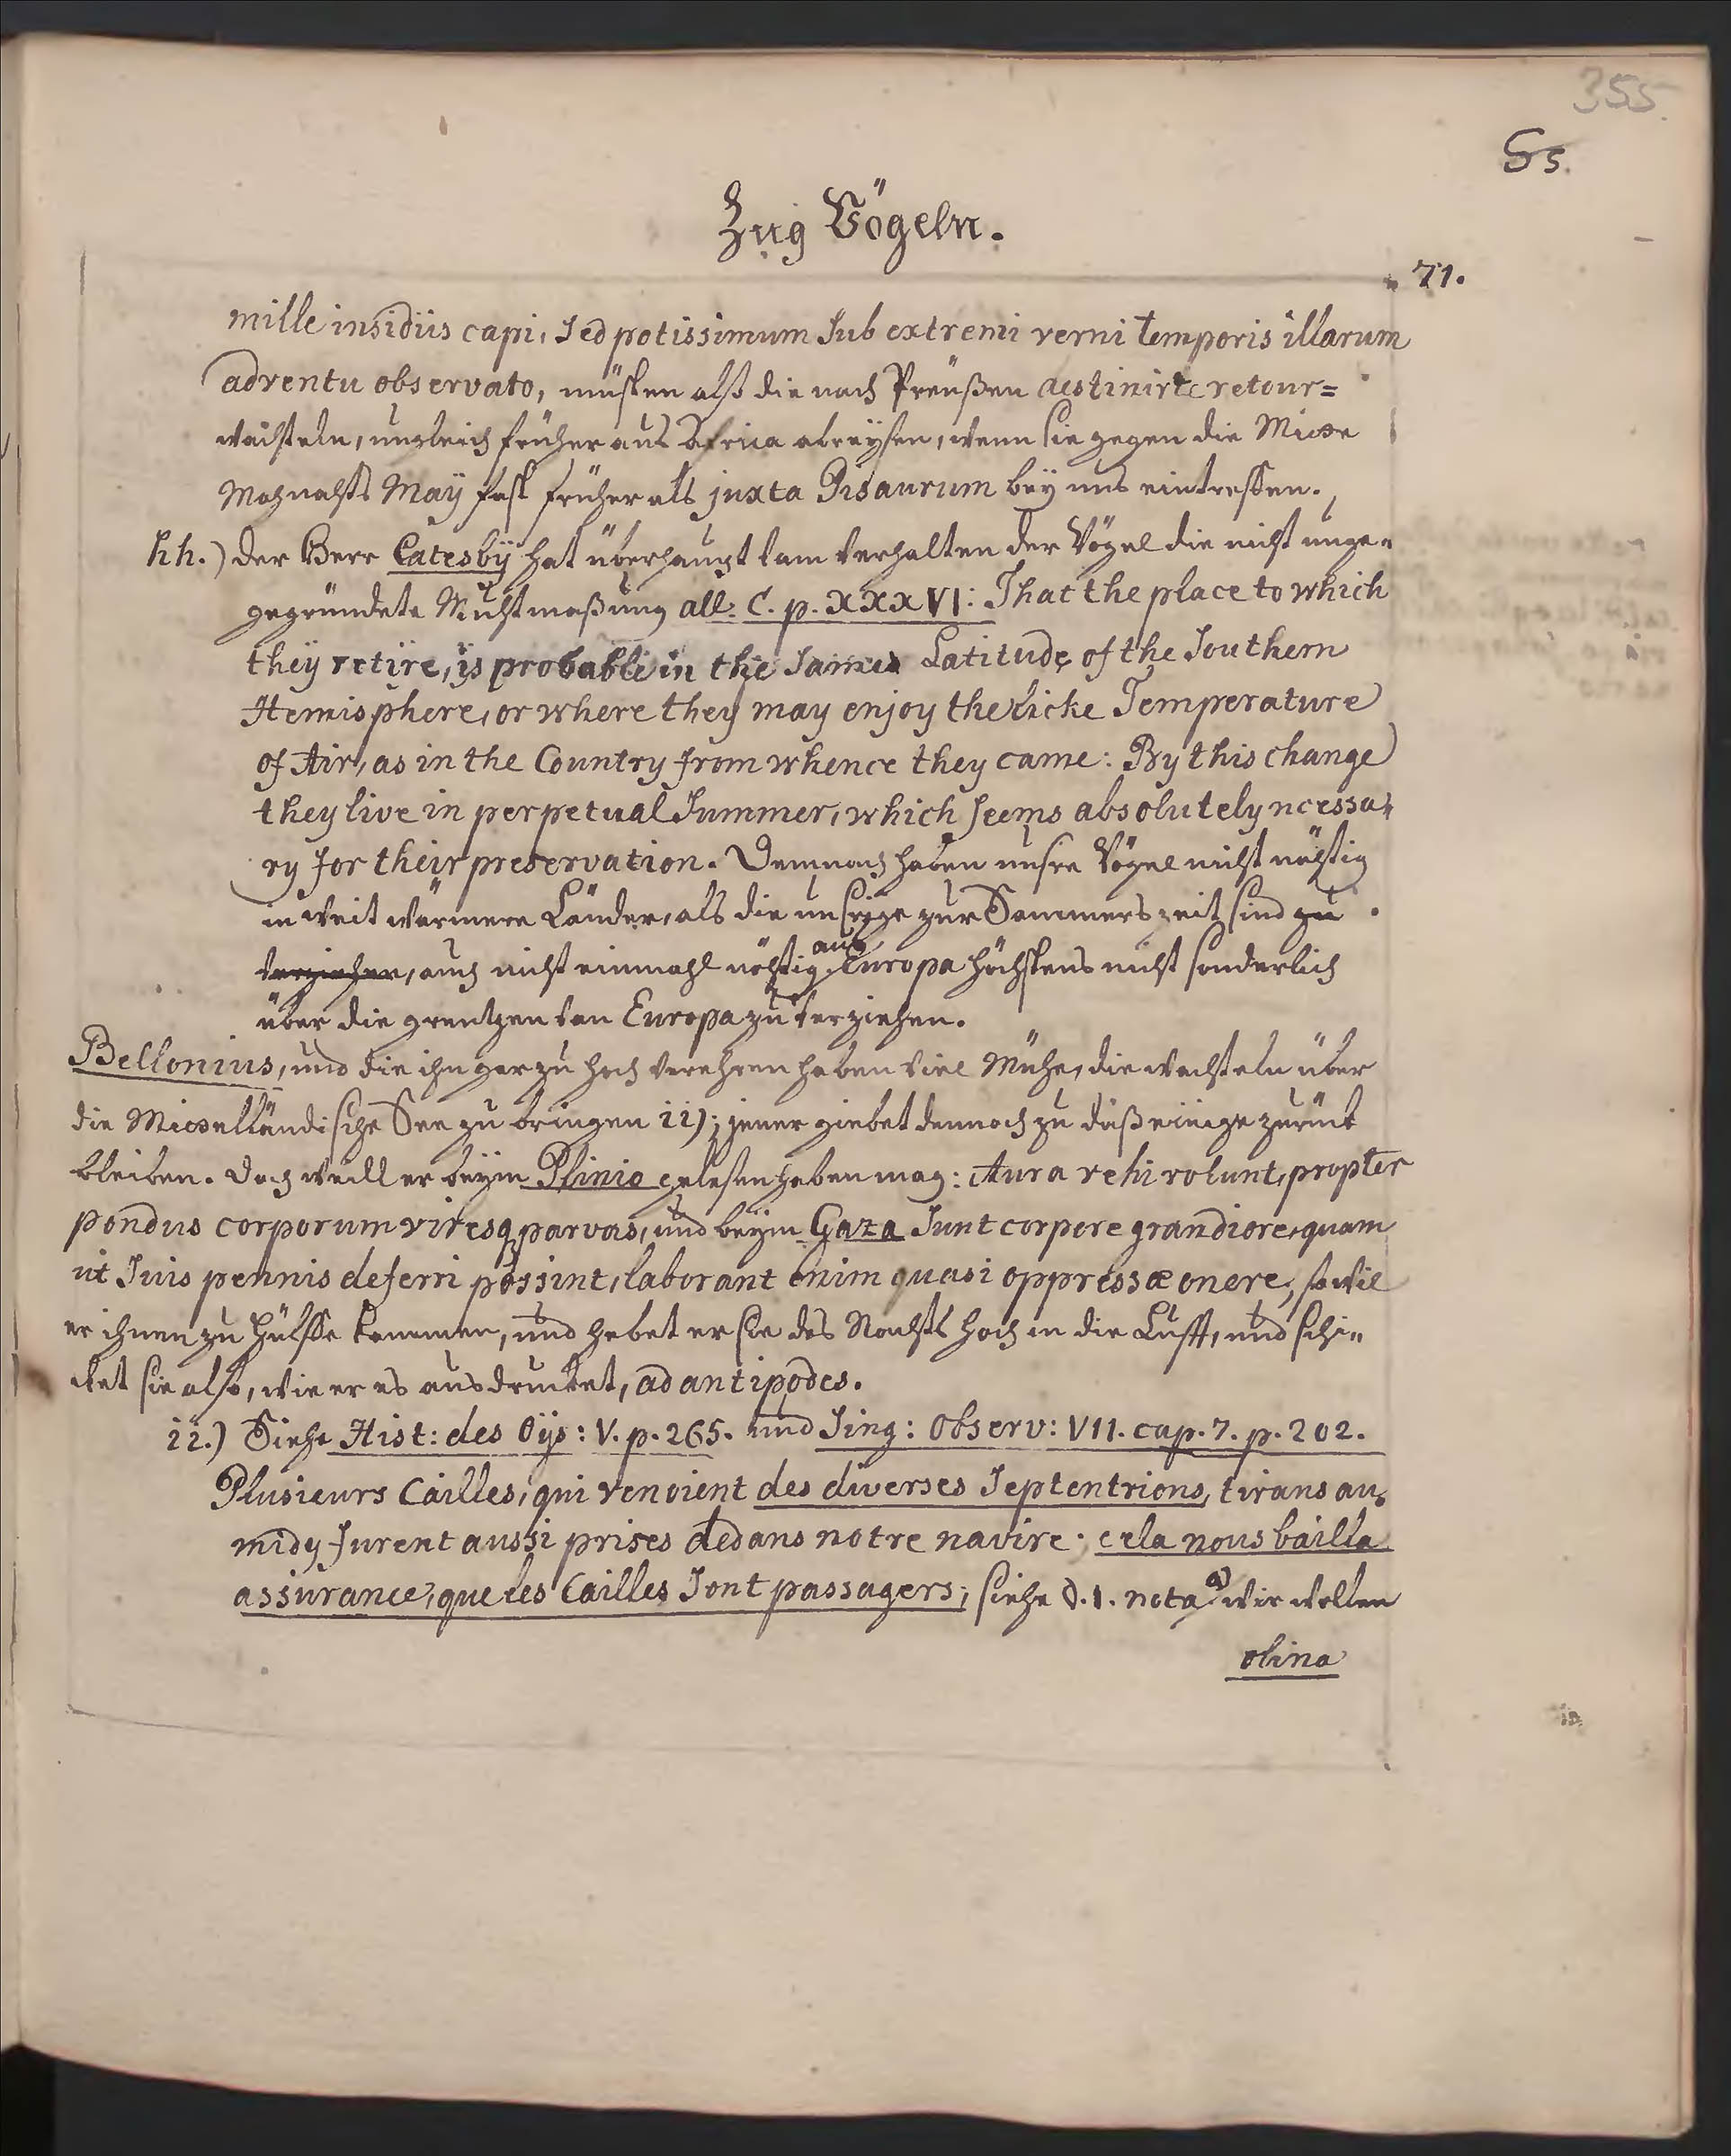 355.
Ss.
Zug Vögeln.
71.
mille insidiis capi, sed potissimum sub extremi verni temporis illarum
adventu observato, müssen alß die nach Preüßen destinirte retour=
wachteln, ungleich früher aus Africa abreÿsen, wenn sie gegen die Mitte
Mohnahts Maÿ fast früher als juxta Pisaurum beÿ uns eintreffen.
hh.) der Herr Catesbÿ hat überhaupt vom verhalten der Vögel die nicht unge-
gegründete Muhtmaßung all. C. p. XXXVI: That the place to which
theÿ retire, ÿs probable in the Sames Latitude of the Southern
Hemisphere, or where they may enjoy the licke Temperature
of Air, as in the Country from whence they came: By this change
they live in perpetual Summer, which seems absolutely ncessa-
ry for their preservation. Demnach haben unsre Vögel nicht nöhtig
in weit wärmere Länder, als die unsrige zur Sommerszeit sind zu
verziehen, auch nicht einmahl nöhtig aus Europa höchstens nicht sonderlich
über die grentzen von Europa zu verziehen.
Bellonius, und die ihn gar zu hoch verehren haben viel Mühe, die wachteln über
die Mittelländische See zu bringen ii); jener giebet dennoch zu daß einige zurück
bleiben. Doch weill er beÿm Plinio gelesen haben mag: Aura vehi volunt, propter
pondus corporum viresq parvas, und beÿm Gaza Sunt corpore grandiore, quam
ut suis pennis deferri possint, laborant enim quasi oppressæ onere, so wil
er ihnen zu hülffe kommen, und hebet er sie des Nachts hoch in die Lufft, und schi-
cket sie also, wie er es ausdrucket, ad antipodes.
ii.) Siehe Hist: des Oÿs: V. p. 265. und Sing: Observ: VII. cap. 7. p. 202.
Plusieurs Cailles, qui venoient des diverses Septentrions, tirans au
midy furent aussi prises dedans notre navire; cela nous bailla
assurance, que les Cailles sont passagers; siehe §. 1. nota a) wir wollen
olina